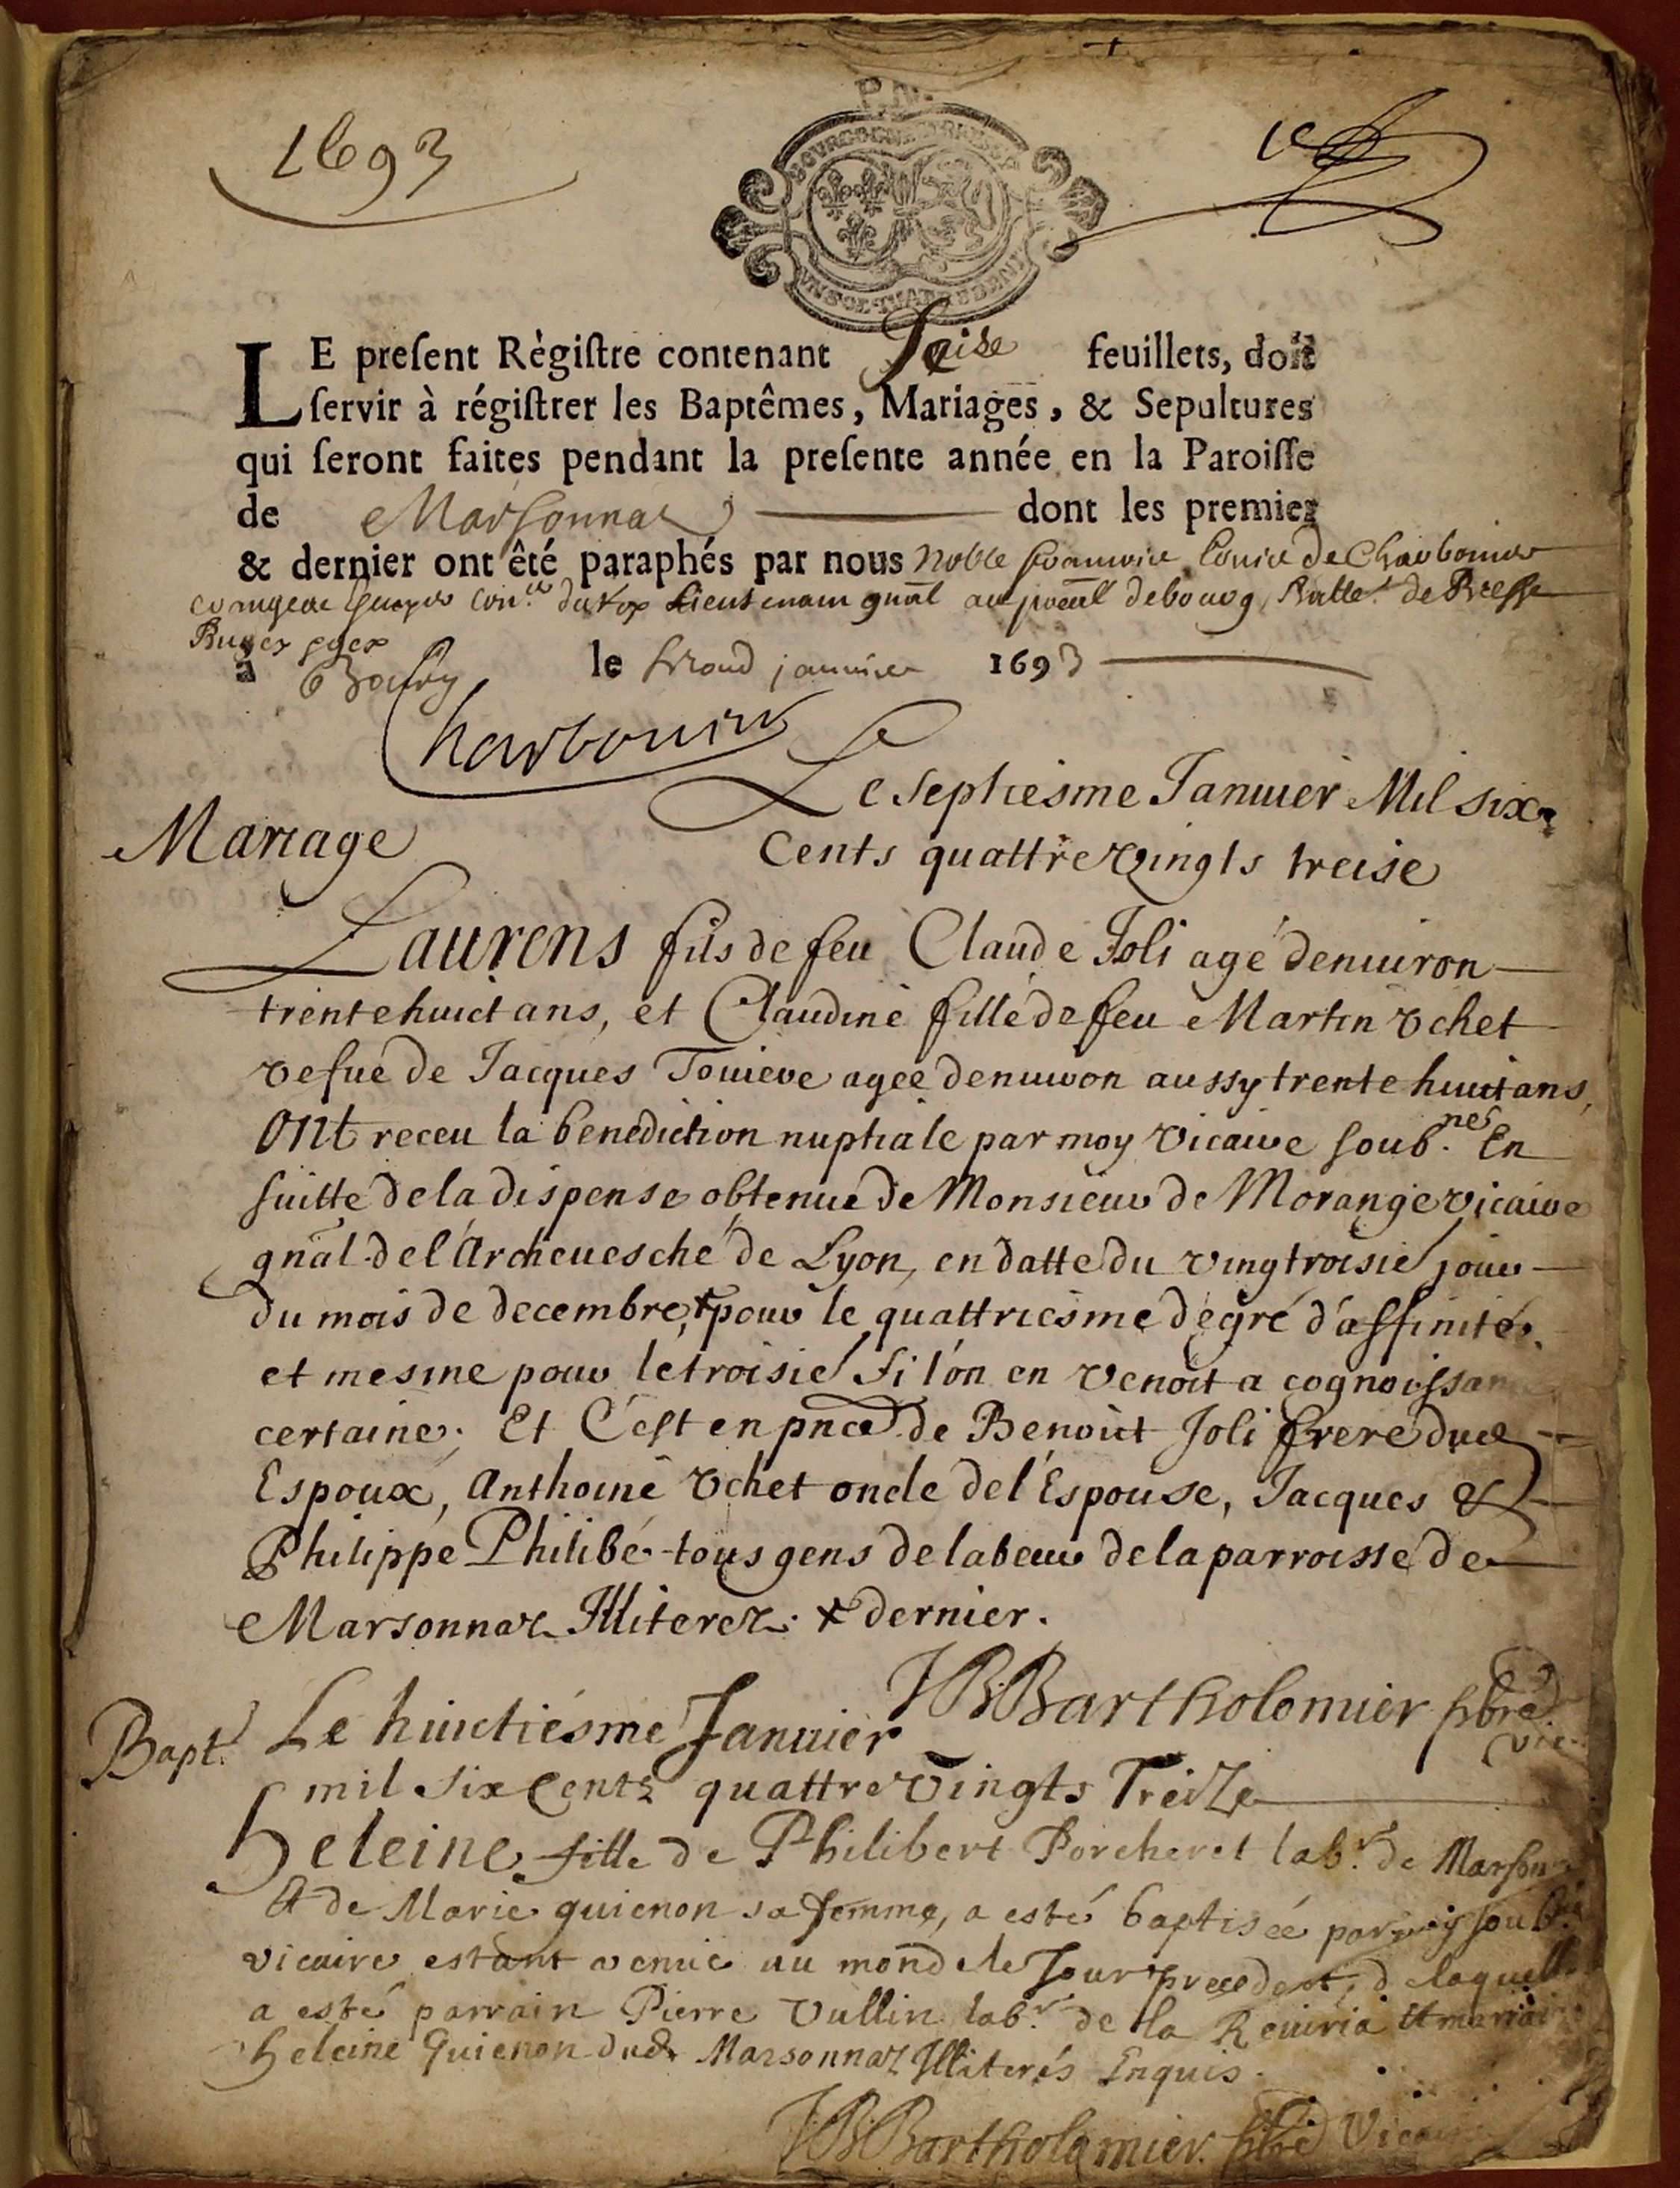 1693
LE preſent Règiſtre contenant Seise feuillets, doit
ſervir à régiſtrer les Baptêmes, Mariages, & Sepultures
qui ſeront faites pendant la preſente année en la Paroiſſe
de Marsonnaz dont les premier
& dernier ont êté paraphés par nous noble de Charbonnier
Lieutenant gnãl au de bourg, de Bresse
Bugey
a Bourg le second janvier 1693
Charbonnier
Le septiesme Januier Mil six
Mariage
Cents quattre vingts treise
Laurens fils de feu Claude Joli agé denuiron
trente huict ans, et Claudine fille de feu Martin Vchet
vefue de Jacques agee denuiron aussy trente huict ans,
Ont receu la benediction nuptiale par moy Vicaire soub.né En
suitte de la dispense obtenue de Monsieur de Morange vicaire
gnãl de l'Archeuesché de Lyon, en datte du vingtroisié jour
du mois de decembre, + pour le quattriesme degré d'affinité,
et mesme pour le troisié si l'ón en venoit a cognoissance
certaine; Et C'est en pnce de Benoict Joli frere dud
Espoux, Anthoine Vchet oncle de l'Espouse, Jacques &
Philippe Philibé tous gens de labeur de la parroisse de
Marsonnaz Illiterez. + dernier.
JBBartholomier pbre
vic.
Bapt. Le huictiésme Januier
mil six Cents quattre vingts Treize
heleine fille de Philibert Porcheret lab.r de Marson
& de Marie guienon sa femme, a esté baptisée par moy soub.né
vicaire estant venue au monde le Jour precedent, de laquelle
a esté parrain Pierre Vullin lab.r de la Reuiria et marrai
heleine Guienon dud. Marsonnaz Illiterés Enquis.
JBBartholomier. pbre Vicaire